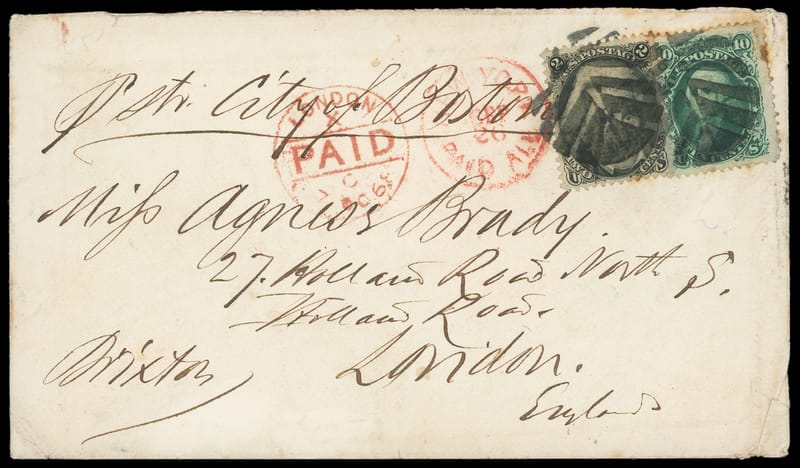 pr str. City of Boston
Miss Agness Brady.
27. Holland Road North S.
Holland Road.
London.
Brixton
England
LONDON
PAID
YORK
PAID ALL
2 U.S. POSTAGE 2
10 U.S. POSTAGE 10